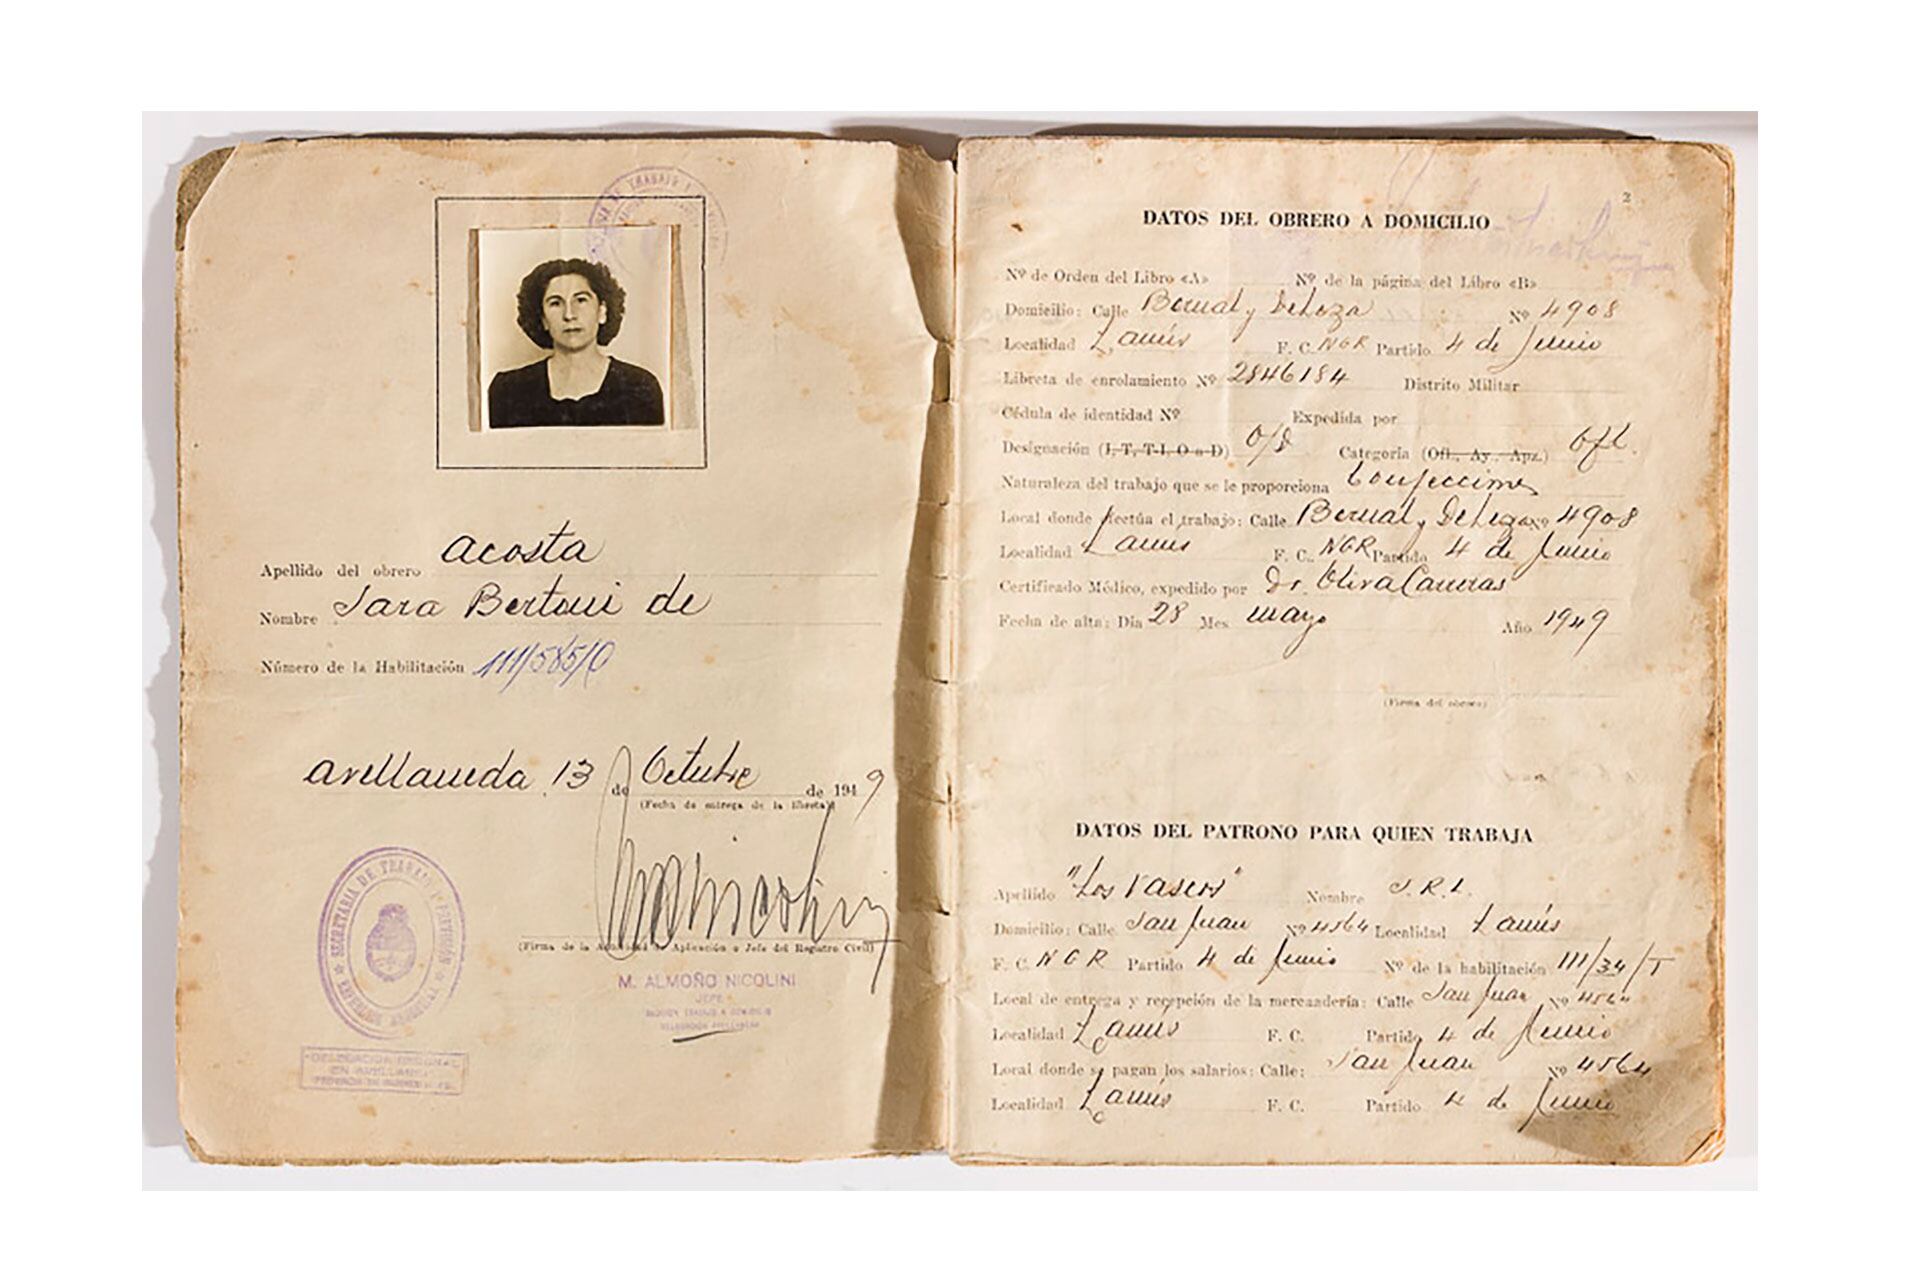 Apellido del obrero Acosta
Nombre Sara Bertoni de
Número de la Habilitación 111/585/O
Avellaneda 13 de Octubre de 1949
(Fecha de entrega de la libreta)
(Firma de la Autoridad de Aplicación o Jefe del Registro Civil)
M. ALMOÑO NICOLINI
JEFE
SECRETARIA DE TRABAJO Y PREVISIÓN
DELEGACION REGIONAL
EN AVELLANEDA
2
DATOS DEL OBRERO A DOMICILIO
Nº de Orden del Libro «A» Nº de la página del Libro «B»
Domicilio: Calle Bernal y Nº 4908
Localidad Lanús F. C. NGR Partido 4 de Junio
Libreta de enrolamiento Nº 2846184 Distrito Militar
Cédula de identidad Nº Expedida por
Designación (I, T, T-I, O o D) O/D Categoría (Ofl., Ay., Apz.) Ofl.
Naturaleza del trabajo que se le proporciona Confecciones
Local donde efectúa el trabajo: Calle Bernal y Nº 4908
Localidad Lanús F. C. NGR Partido 4 de Junio
Certificado Médico, expedido por Dr. Oliva
Fecha de alta: Día 28 Mes mayo Año 1949
(Firma del obrero)
DATOS DEL PATRONO PARA QUIEN TRABAJA
Apellido "Los Vascos" Nombre S.R.L.
Domicilio: Calle San Juan Nº 4564 Localidad Lanús
F. C. NGR Partido 4 de Junio Nº de la habilitación 111/34/T
Local de entrega y recepción de la mercadería: Calle San Juan Nº 4564
Localidad Lanús F. C. Partido 4 de Junio
Local donde se pagan los salarios: Calle: San Juan Nº 4564
Localidad Lanús F. C. Partido 4 de Junio